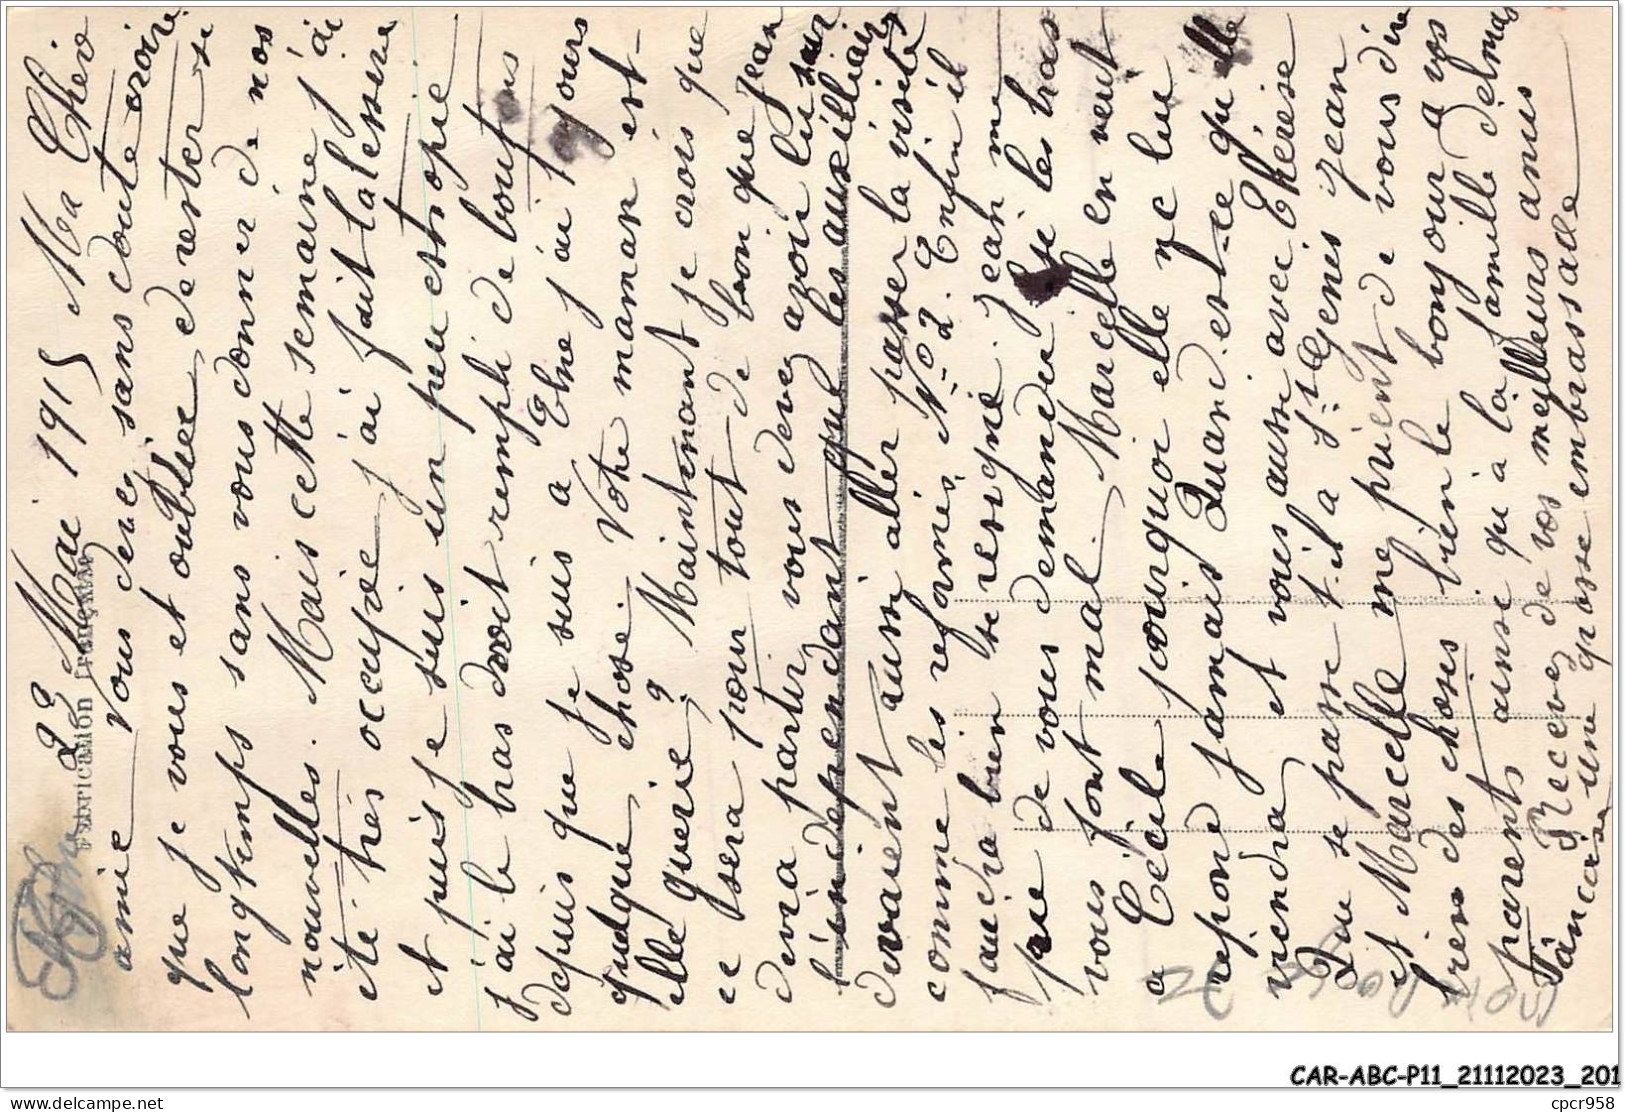 22 Mai 1915 Ma Chère
amie Vous devez sans doute croire
que je vous et oubliée de rester si
longtemps sans vous donner de nos
nouvelles. Mais cette semaine j'ai
été très occupée j'ai fait la lessive
et puis je suis un peu estropie
j'ai le bras droit rempli de boutons
depuis que je suis a j'ai toujours
quelque chose. Votre maman est-
elle guerie? Maintenant je crois que
ce sera pour tout de bon que Jean
devra partir, vous devez avoir lu sur
l'independant que les auxilliaires
devaient aussi aller passer la visite
comme les reformés No 2. Enfin il
faudra bien se resigné. Jean me
prie de vous demander si les bras
vous font mal. Marcelle en veut
a Cécile pourquoi elle ne lui
repond jamais Quand est-ce qu'elle
viendra et vous aussi avec Thérèse
Que se passe t'il a St Genis Jean
et Marcelle me prient de vous dire
bien des choses bien le bonjour a vos
parents ainsi qu'à la famille Delmas
Recevez de vos meilleurs amis
une grosse embrassade
Fabrication française
CAR-ABC-P11_21112023_201
delcampe.net
cpcr958